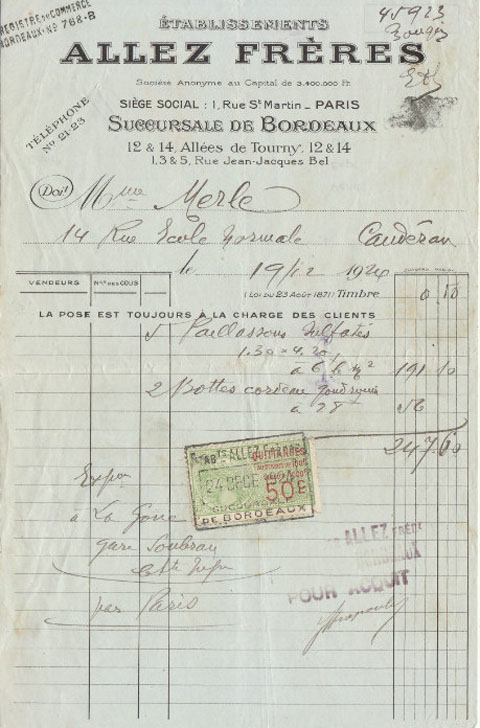 REGISTRE DU COMMERCE
BORDEAUX-No 768-B
45923
ÉTABLISSEMENTS
ALLEZ FRÈRES
Société Anonyme au Capital de 3.400.000 Fr
SIÈGE SOCIAL : 1, Rue St Martin - PARIS
SUCCURSALE DE BORDEAUX
TÉLÉPHONE
No 21-23
12 & 14, Allées de Tourny. 12 & 14
1, 3 & 5, Rue Jean-Jacques Bel
Doit Mme Merle
14 Rue Ecole Normale Caudéran
le 19/12 1924
VENDEURS Nos DES COUS
(Loi du 23 Août 1871) Timbre 0 10
LA POSE EST TOUJOURS À LA CHARGE DES CLIENTS
5 Paillassons sulfatés
1.30 x 4.20
à 7 le m2 191 10
2 Bottes cordeau goudronné
à 28 56
247.10
Ets ALLEZ Frères
QUITTANCES
24 DECE
50c
SUCCURSALE
DE BORDEAUX
Expon
à La Gare
gare Soubray
par Paris
ALLEZ FRÈRES
BORDEAUX
POUR ACQUIT